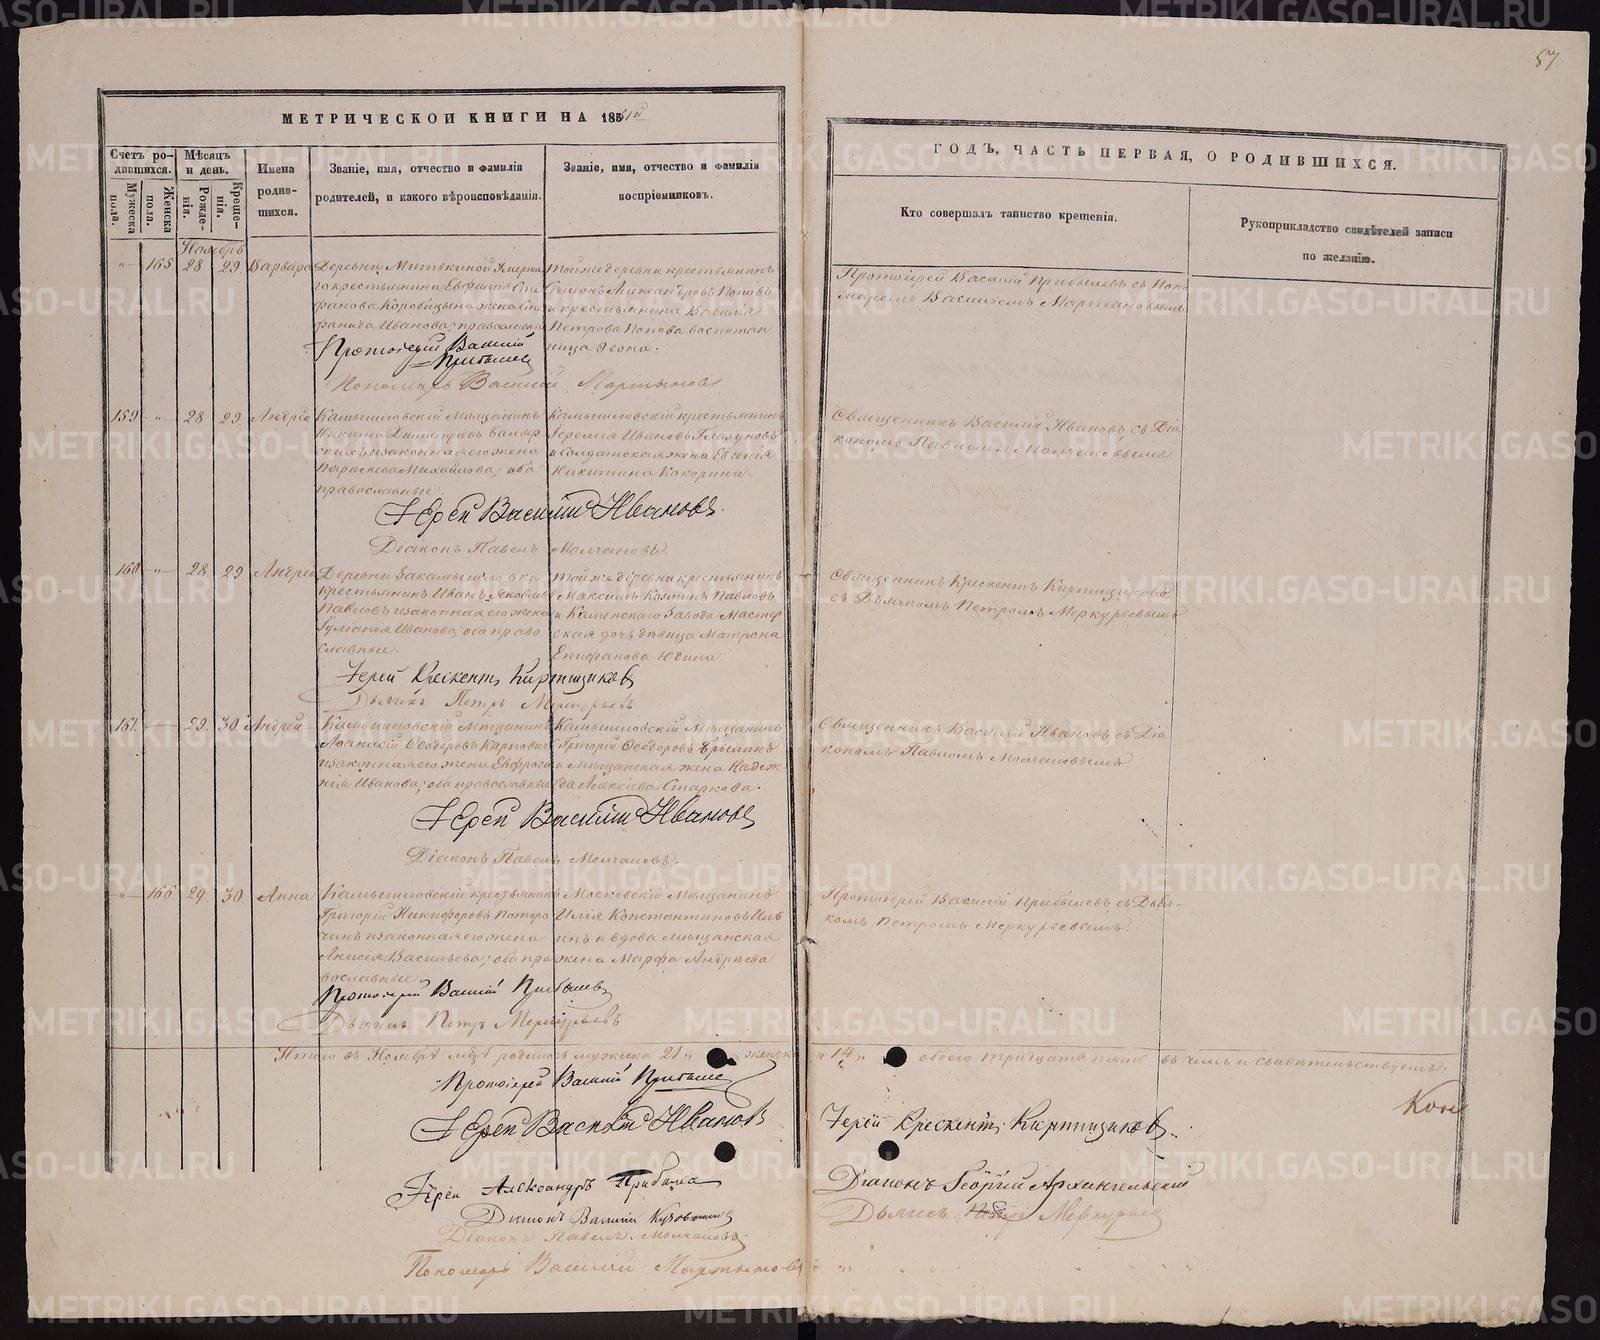 57
МЕТРИЧЕСКОЙ КНИГИ НА 1861й
ГОДЪ, ЧАСТЬ ПЕРВАЯ, О РОДИВШИХСЯ.
Счетъ ро-
дившихся.
Мужеска
пола.
Женска
пола.
Мѣсяцъ
и день.
Рожде-
нія.
Креще-
нія.
Имена
родив-
шихся.
Званіе, имя, отчество и фамилія
родителей, и какого вѣроисповѣданія.
Званіе, имя, отчество и фамилія
воспріемниковъ.
Кто совершалъ таинство крещенія.
Рукоприкладство свидѣтелей записи
по желанію.
Ноябрь
" 165 28 29 Варвара
Деревни Митькиной Умерша
го крестьянина Евфимія Сте
фанова Коробицына жена Сте
фанида Иванова; православная
Тойже деревни крестьянинъ
Симеонъ Александровъ Поповъ
и крестьянина Василія
Петрова Попова воспитан
ница Ѳеона.
Протоіерей Василій Прибылевъ съ Поно
маремъ Василіемъ Мартыновымъ
Протоіерей Василій
Прибылевъ
Пономарь Василій Мартыновъ
159 " 28 29 Андрей
Камышловскій Мѣщанинъ
Никита Димитріевъ
и законная его жена
Параскева Михайлова; оба
православные
Камышловскій крестьянинъ
Іеремія Ивановъ Глазуновъ
и Солдатская жена Евгенія
Никитина Кокорина.
Священникъ Василій Ивановъ, съ Діа
кономъ Павломъ Молчановымъ
Іерей Василій Ивановъ.
Діаконъ Павелъ Молчановъ.
160 " 28 29 Андрей
Деревни Закамышловки
крестьянинъ Иванъ Яковлевъ
Павловъ и законная его жена
Іуліанія Иванова; оба право
славные.
Тойже деревни крестьянинъ
Максимъ Козминъ Павловъ
и Каменскаго Завода Мастер
ская дочь дѣвица Матрона
Епифанова Юдина.
Священникъ Крескентъ Киртищиковъ
съ Дьячкомъ Петромъ Меркурьевымъ
Іерей Крескентъ Киртищиковъ
Дьячекъ Петръ Меркурьевъ
161. " 29. 30. Андрей
Камышловскій Мѣщанинъ
Аѳанасій Ѳеодоровъ Карповичъ
и законная его жена Евфроси
нія Иванова; оба православные
Камышловскій Мѣщанинъ
Григорій Ѳеодоровъ
и Мѣщанская жена Надеж
да Алексіева Старкова.
Священникъ Василій Ивановъ, съ Діа
кономъ Павломъ Молчановымъ
Іерей Василій Ивановъ
Діаконъ Павелъ Молчановъ.
" 166 29 30. Анна
Камышловскій крестьянинъ
Григорій Никифоровъ Поторо
чинъ и законная его жена
Анисія Васильева; оба пра
вославные
Московскій Мѣщанинъ
Илія Константиновъ Иль
инъ и вдова мѣщанская
жена Марфа Андреева
Протоіерей Василій Прибылевъ, съ Дья-
комъ Петромъ Меркурьевымъ
Протоіерей Василій Прибылевъ
Дьячекъ Петръ Меркурьевъ
Итого въ Ноябрѣ м-цѣ родилось мужеска 21 " женска " 14 " обоего тридцать пять въ чемъ и свидѣтельствуемъ:
Протоіерей Василій Прибылев
Кон
Іерей Василій Ивановъ
Іерей Крескентъ Киртищиковъ.
Іерей Александръ Прибылев
Діаконъ Георгій Архангельскій
Діаконъ Василій
Дьячекъ Петръ Меркурьев
Діаконъ Павелъ Молчановъ.
Пономарь Василій Мартыновъ
METRIKI.GASO-URAL.RU